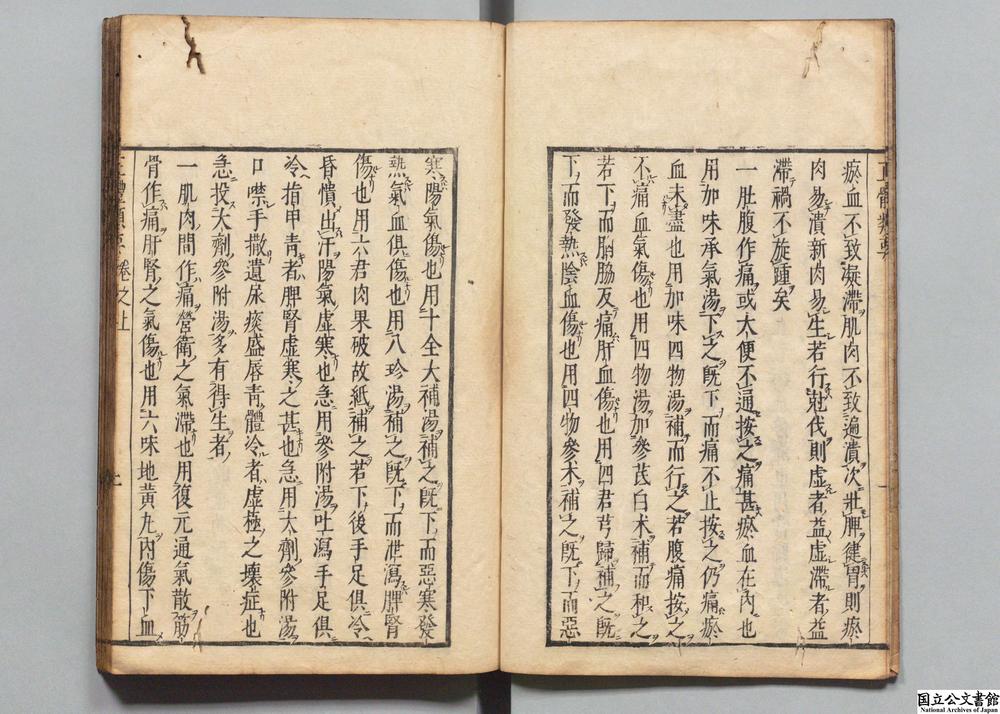 瘀血不致凝滯肌肉不致遍潰次壯脾健胃則瘀
肉易潰新肉易生若行尅伐則虛者益虛滯者益
滯禍不旋踵矣
一肚腹作痛或大便不通按之痛甚瘀血在內也
用加味承氣湯下之既下而痛不止按之仍痛瘀
血未盡也用加味四物湯補而行之若腹痛按之
不痛血氣傷也用四物湯加參茋白朮補而和之
若下而胸脇反痛肝血傷也用四君芎歸補之既
下而發熱陰血傷也用四物參朮補之既下而惡
寒陽氣傷也用十全大補湯補之既下而惡寒發
熱氣血俱傷也用八珍湯補之既下而泄瀉脾腎
傷也用六君肉果破故紙補之若下後手足俱冷
昏憒出汗陽氣虛寒也急用參附湯吐瀉手足俱
冷指甲青者脾腎虛寒之甚也急用大劑參附湯
口噤手撒遺尿痰盛唇青體冷者虛極之壞症也
急投大劑參附湯多有得生者
一肌肉間作痛營衛之氣滯也用復元通氣散筋
骨作痛肝腎之氣傷也用六味地黃丸內傷下血
正體類要 卷之上
国立公文書館
National Archives of Japan